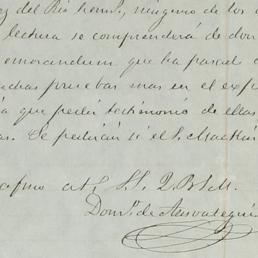 del Rio herm.s, ninguno de los
lectura se comprenderá de don
emorandum que ha pasado
uchas pruebas mas en el exp
a que pedir testimonio de ellas
as. Se pedirán si el S. Mac
afmo att S. S. Q. B. S. M.
Dom.o de Ansoategui